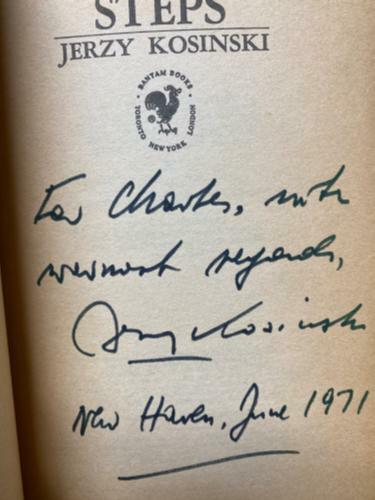 STEPS
JERZY KOSINSKI
BANTAM BOOKS
TORONTO · NEW YORK · LONDON
For Charles, with
warmest regards,
Jerzy Kosinski
New Haven, June 1971